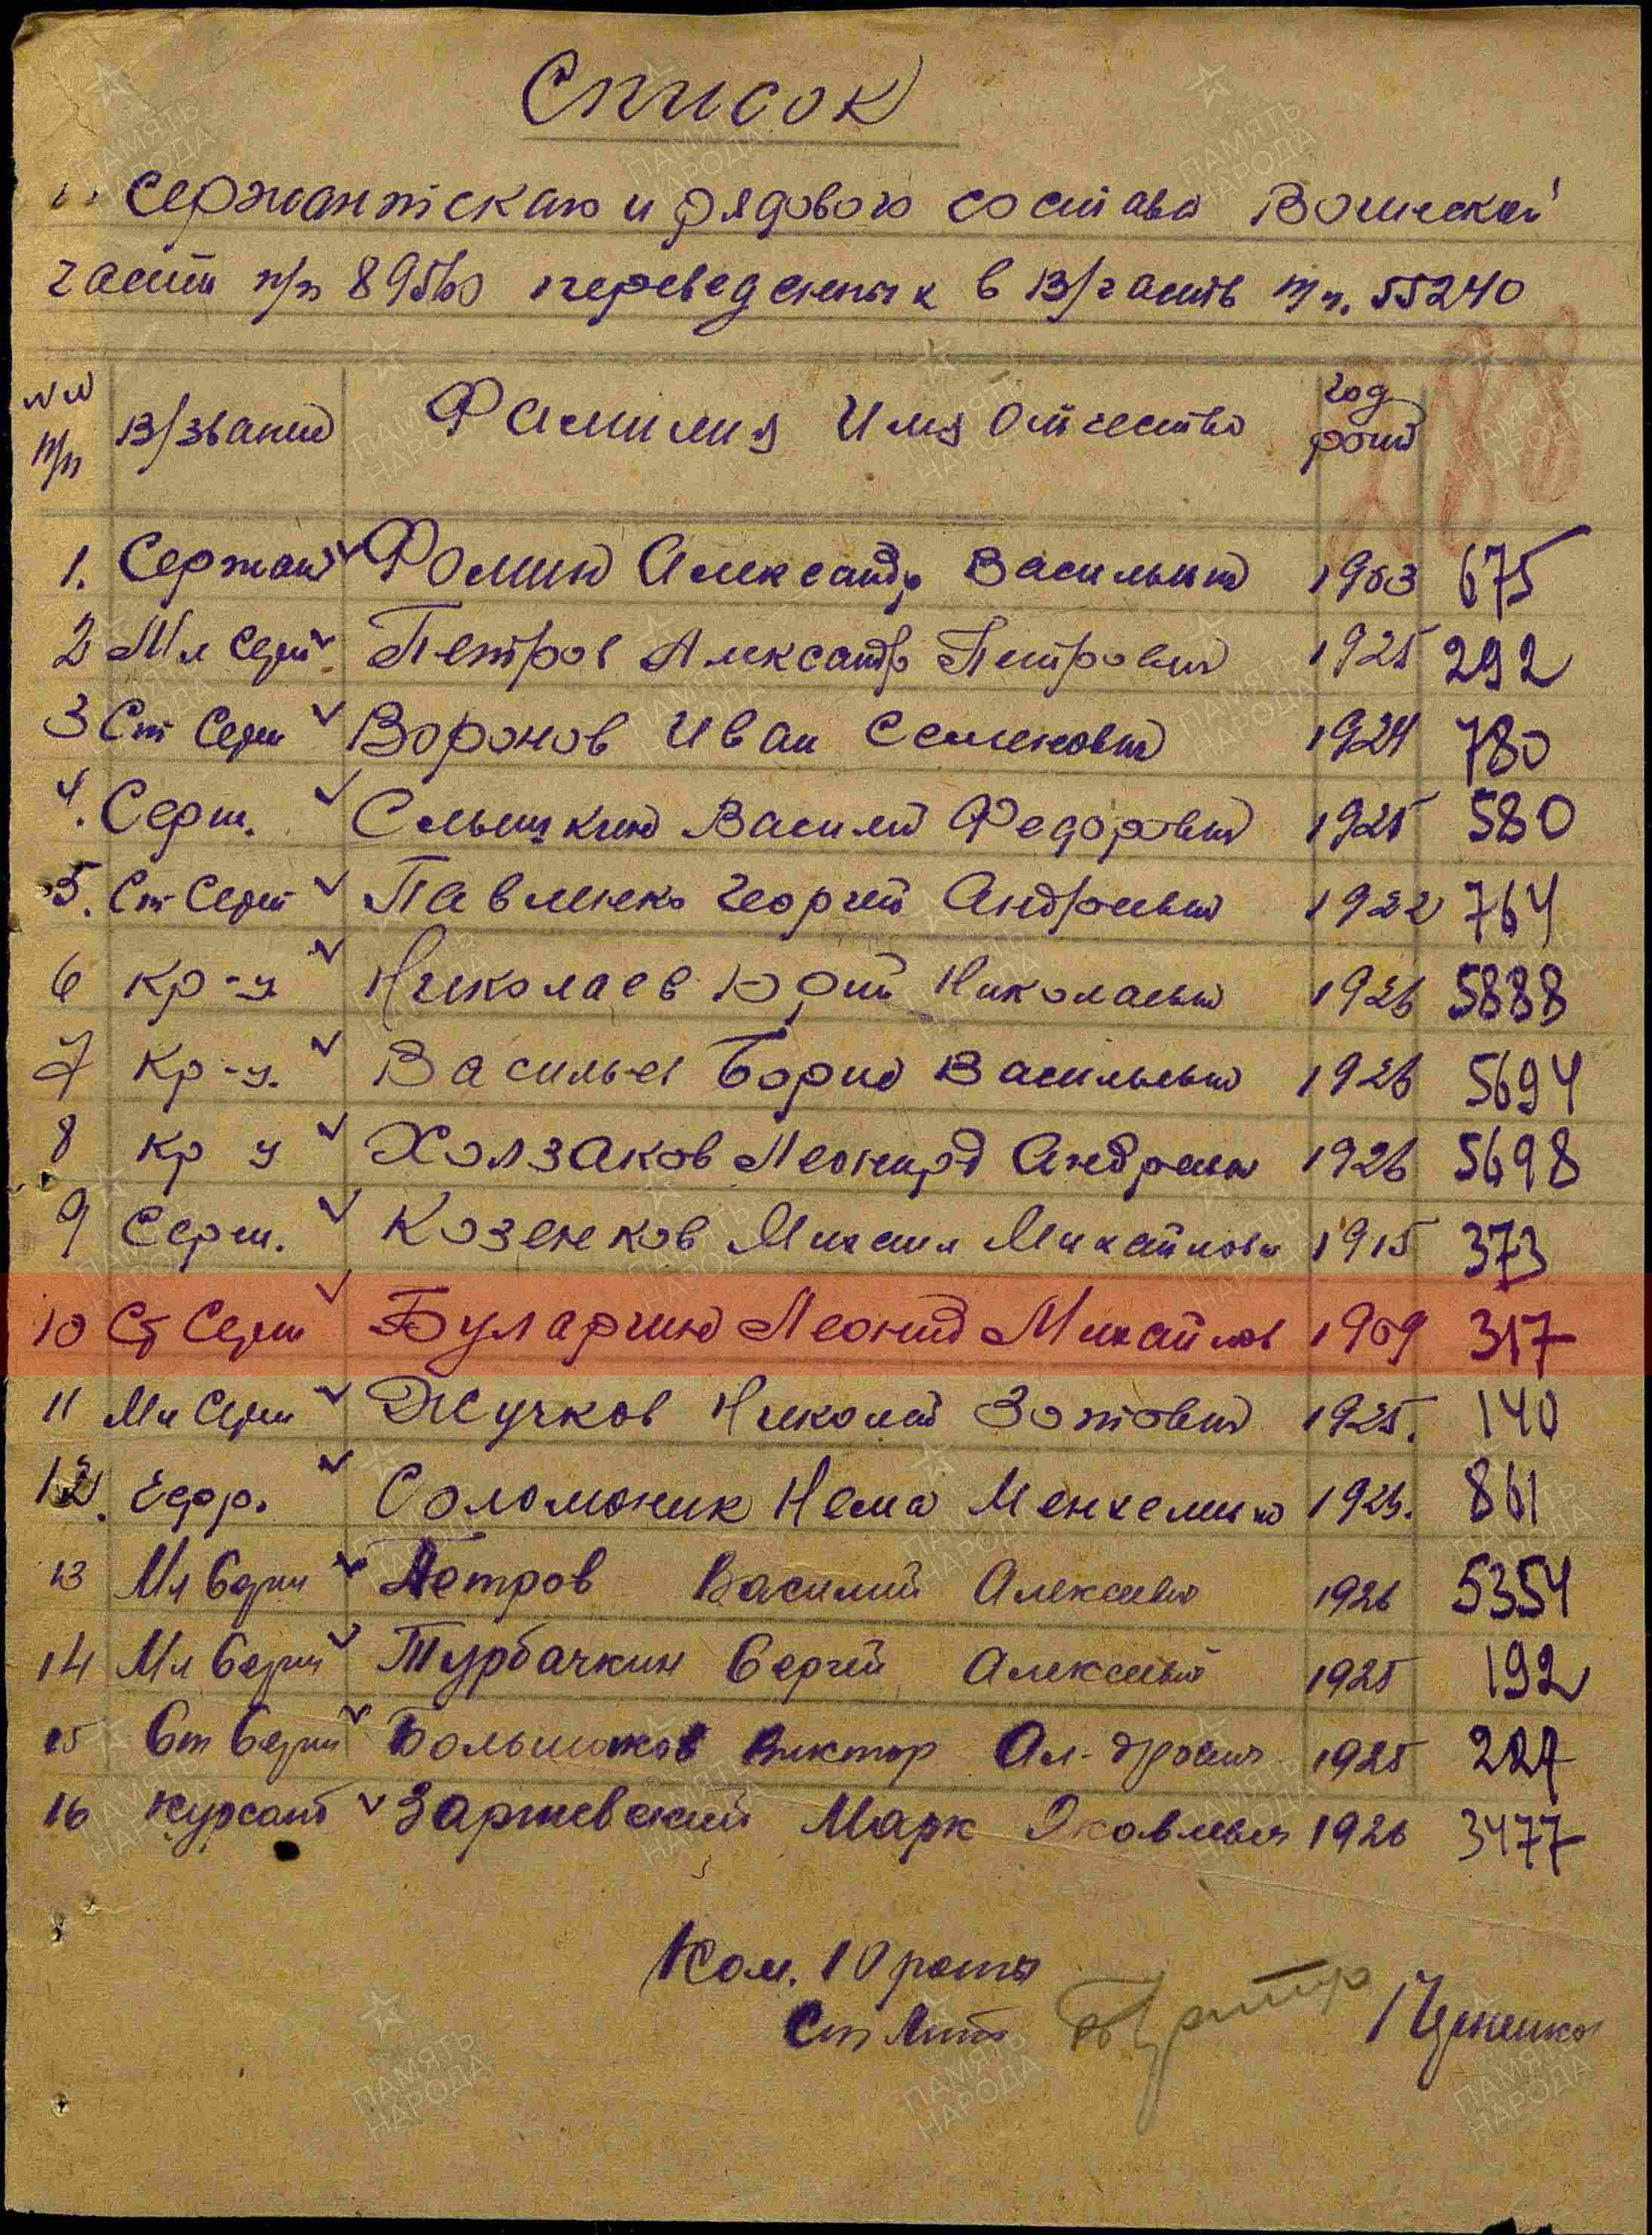 Список
Сержантского и рядового состава Воинской
части п/п 89560 переведенных в В/часть п/п. 55240
№ №
п/п В/звание Фамилия Имя Отчество год
рожд
1. Сержант Фомин Александр Васильевич 1903 675
2 Мл Серж Петров Александр Петрович 1925 292
3 Ст Серж Воронов Иван Семенович 1924 780
4. Серж. Слышкин Василий Федорович 1925 580
5. Ст Серж Павленко Георгий Андреевич 1922 764
6 Кр-ц Николаев Юрий Николаевич 1926 5888
7 Кр-ц. Васильев Борис Васильевич 1926 5694
8 Кр ц Холзаков Леонид Андреев 1926 5698
9 Серж. Козенков Михаил Михайлович 1915 373
10 Ст Серж Буларгин Леонид Михайлов 1909 317
11 Мл Серж Жучков Николай Зотович 1925. 140
12. Ефр. Соломоник Нема 861
13 Мл Серж Петров Василий Алексеевич 1926 5354
14 Мл Серж Турбачкин Сергей Алексеевич 1925 192
15 Ст Серж Большаков Виктор Ал-дрович 1925 227
16 курсант Заржевский Марк Яковлевич 1926 3477
Ком. 10 роты
Ст Лт
ПАМЯТЬ
НАРОДА